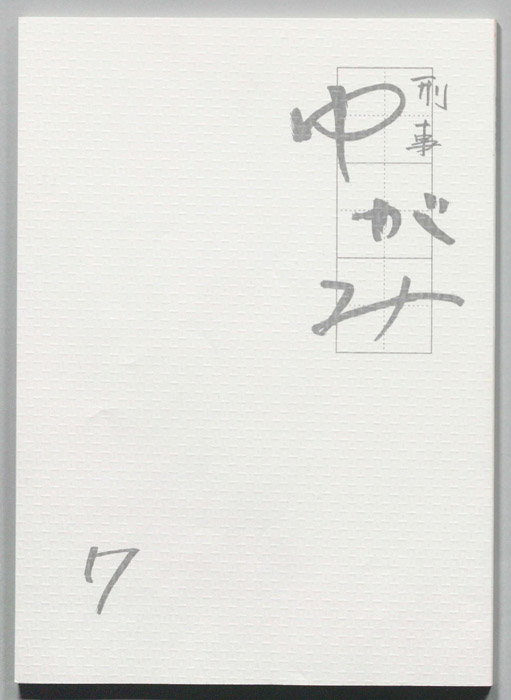 刑事
ゆがみ
7